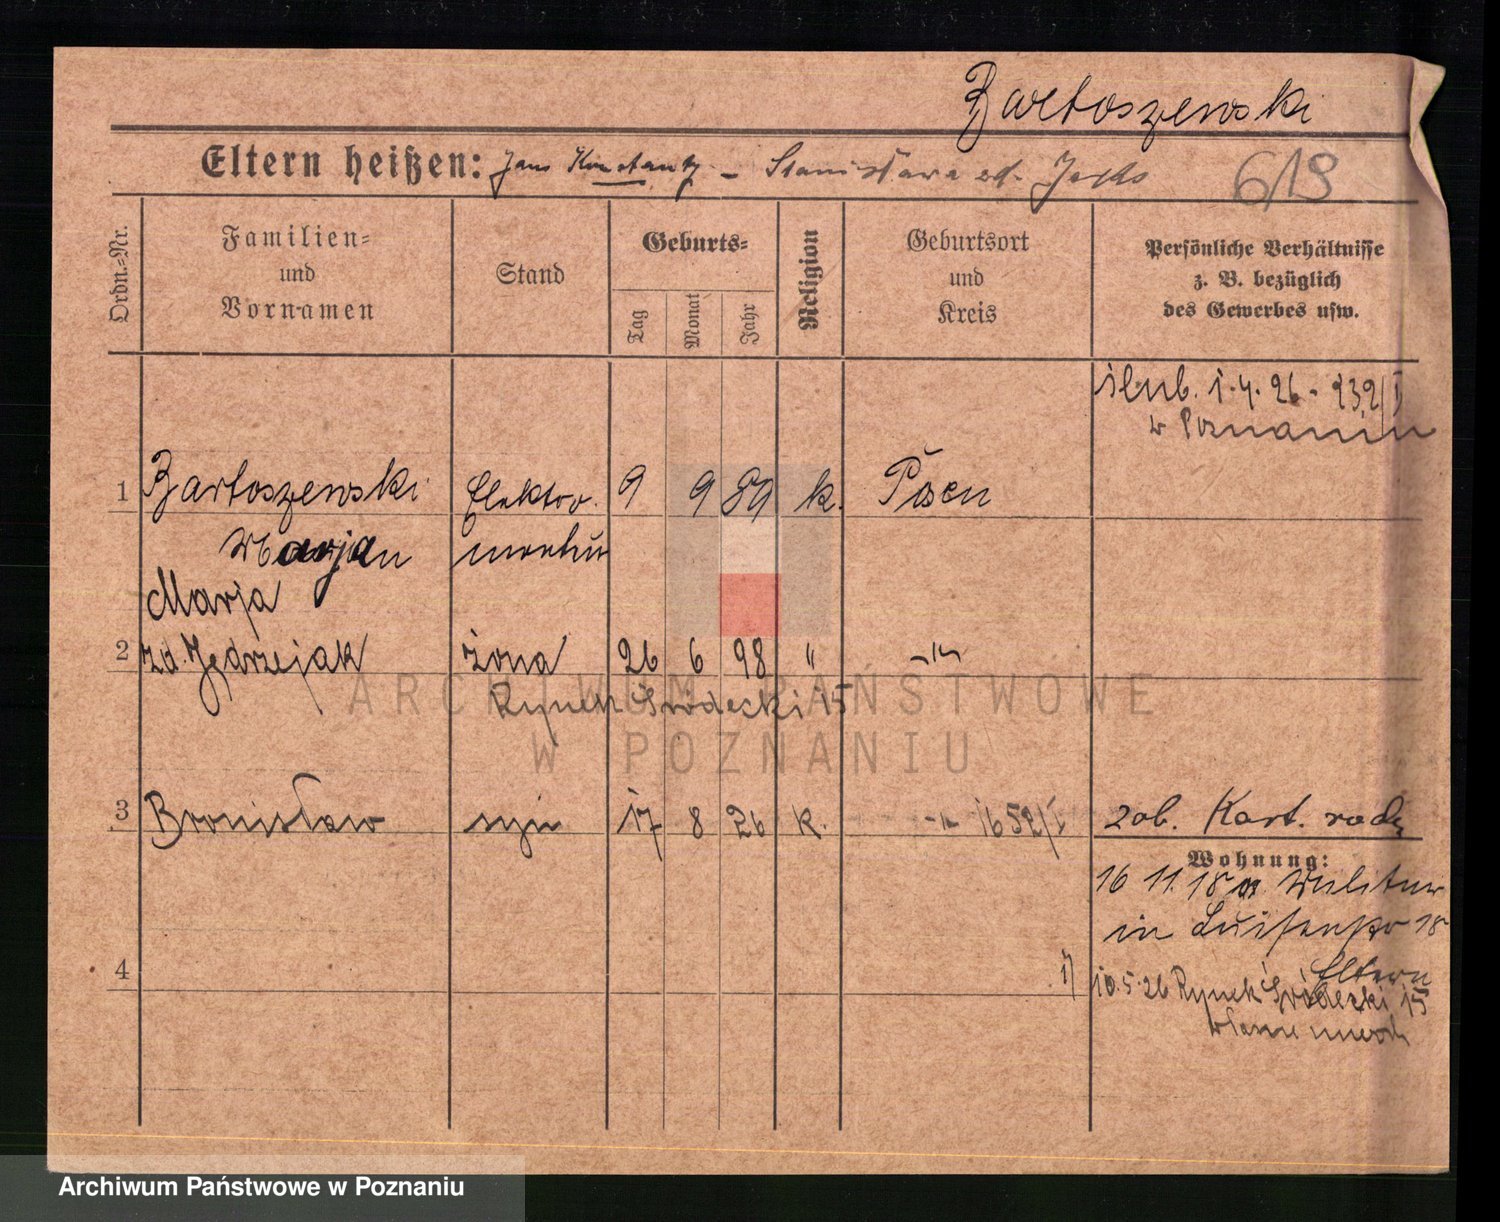 Bartoszewski
Eltern heißen: Jans Konstanty - Stanisława
618
Ordn.-Nr.
Familien-
und
Vornamen
Stand
Geburts-
Tag
Monat
Jahr
Religion
Geburtsort
und
Kreis
Persönliche Verhältnisse
z. B. bezüglich
des Gewerbes usw.
ślub. 1.4.26 - 232/I
w Poznaniu
1 Bartoszewski Elektro. 9 9 89 k. Posen
Marjan
Marja
2 zd. Jędrzejak żona 26 6 98 "
Rynek Śródecki 15
3 Bronisław syn 17 8 26 k. 1652/I zob. Kart. rodz
Wohnung:
16 11. 18 Militär
in Luisenstr 18
Eltern
4 10.5.26 Rynek Śródecki 15
ARCHIWUM PAŃSTWOWE
W POZNANIU
Archiwum Państwowe w Poznaniu